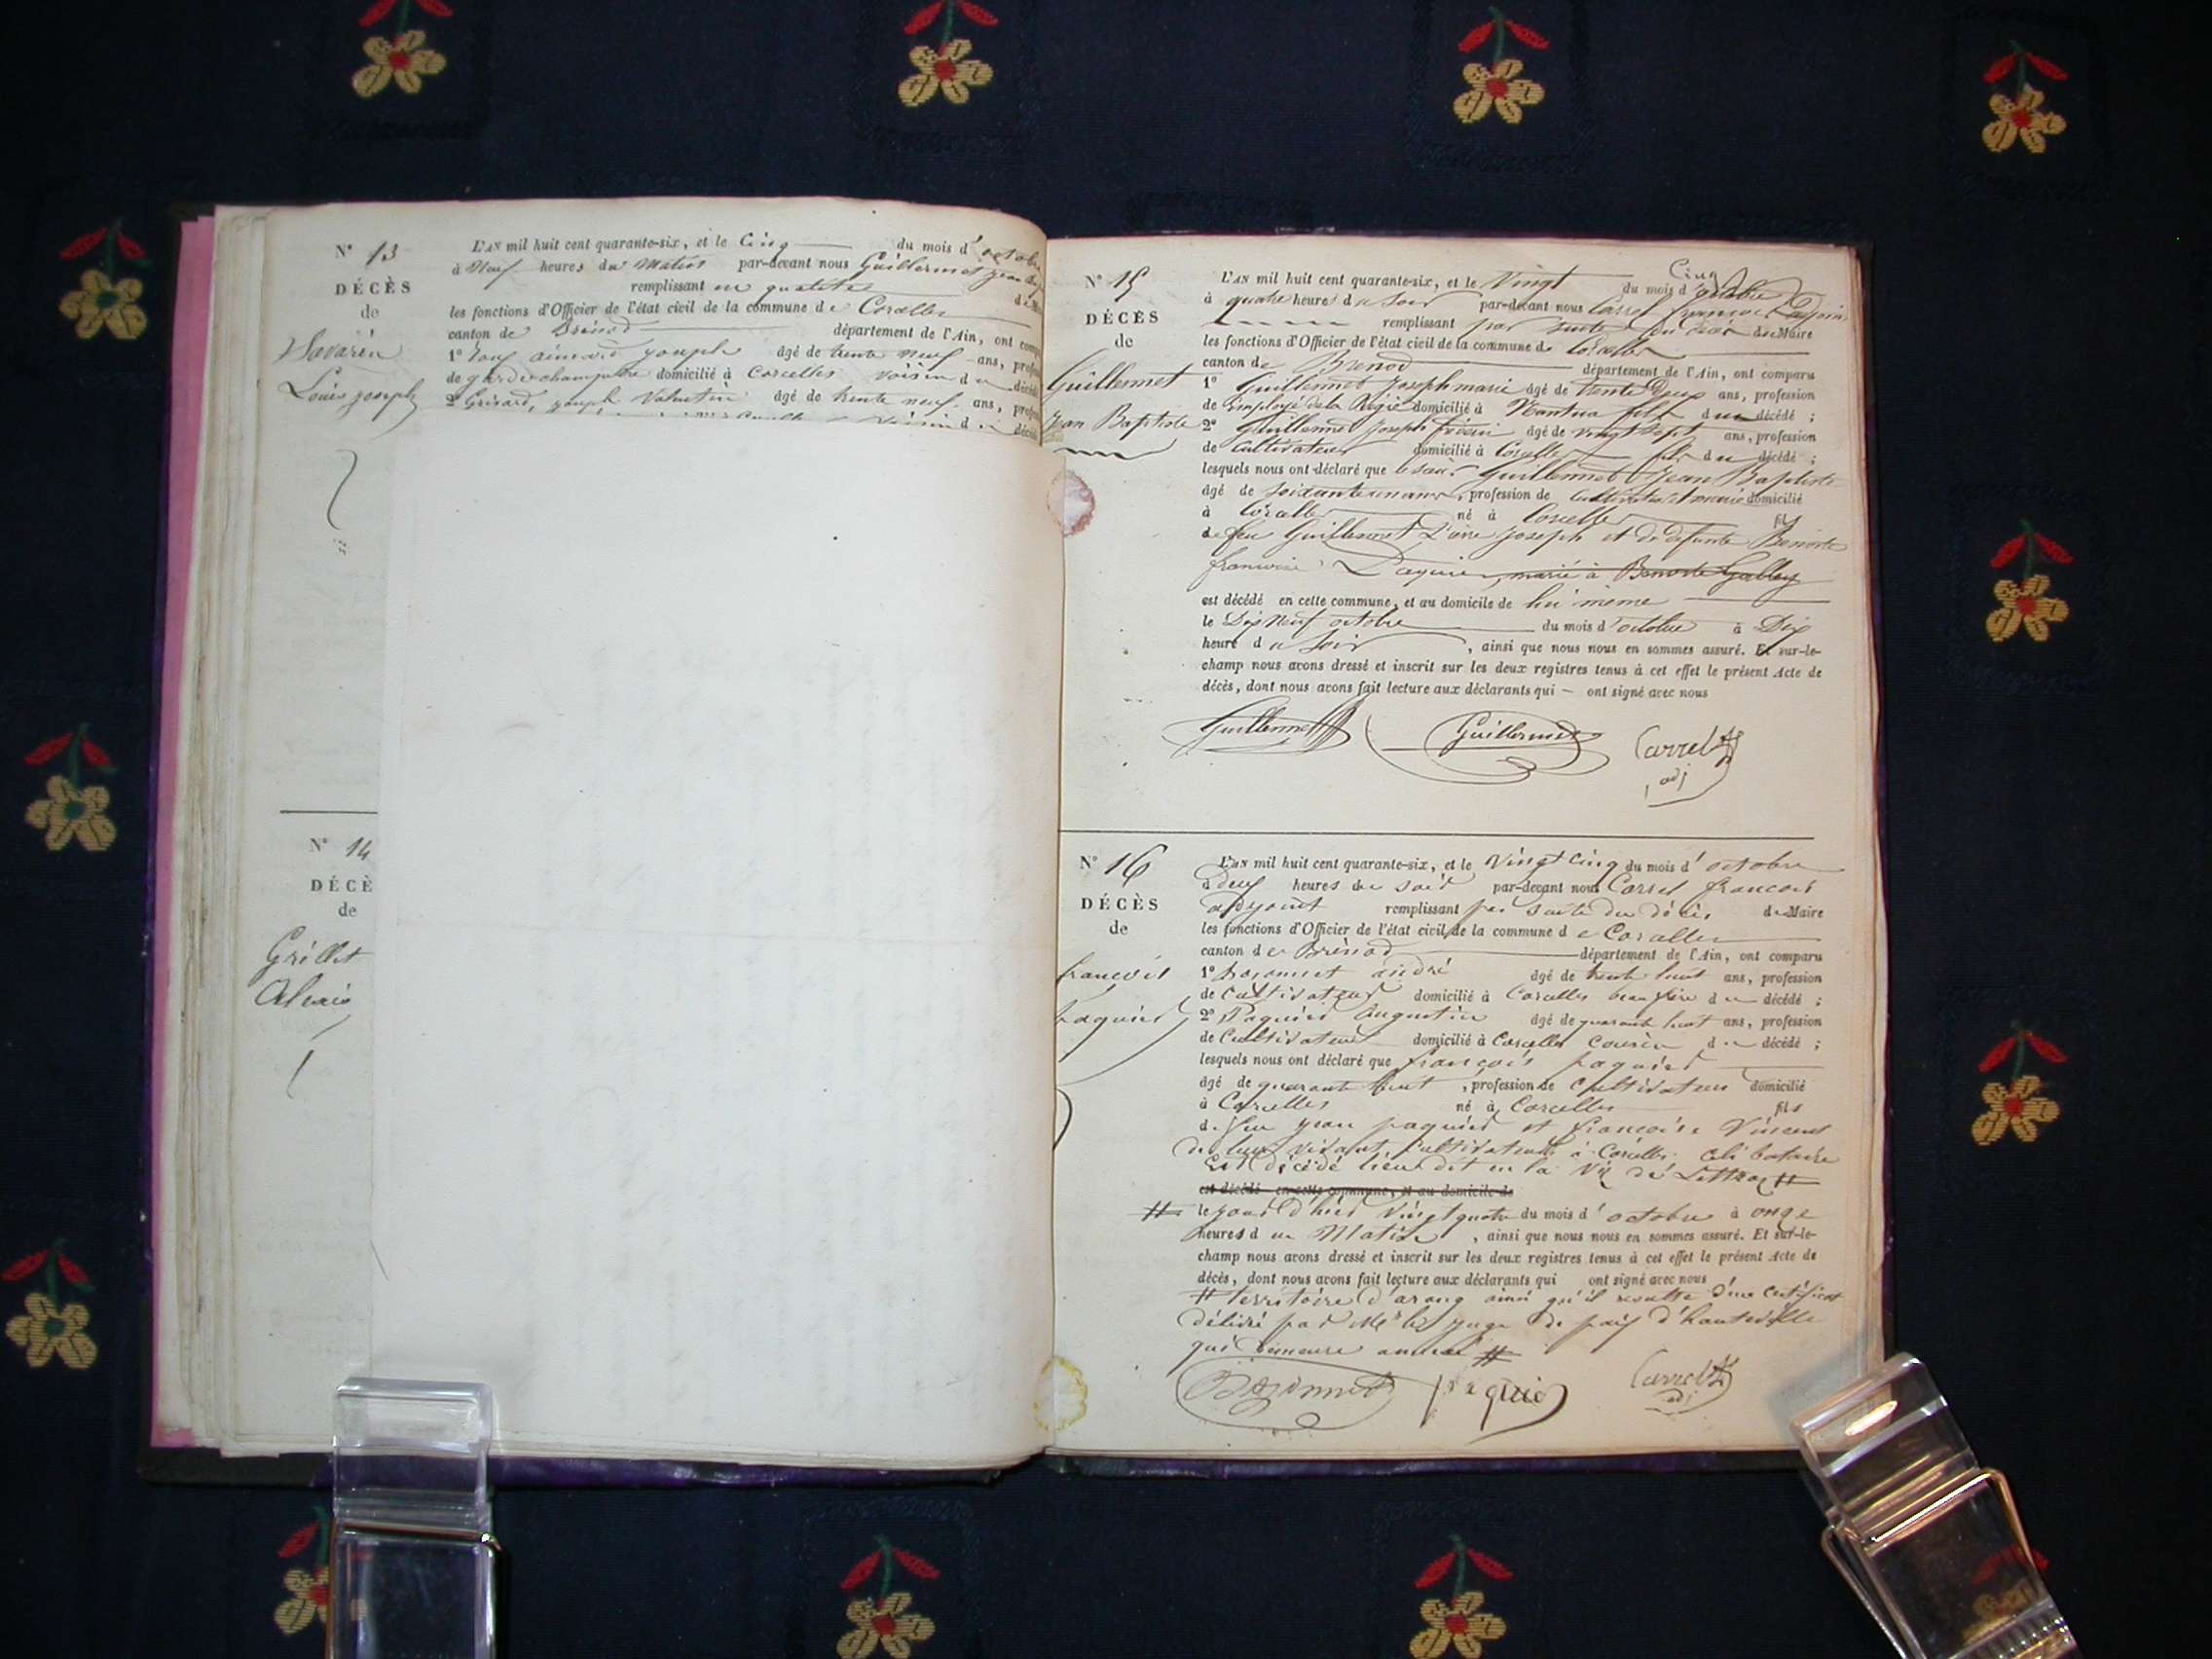 N° 13
DÉCÈS
de
Savarin
Louis joseph
L'AN mil huit cent quarante-six, et le Cinq du mois d'octobre
à Neuf heures du Matin par-devant nous Guillermet jean
remplissant en qualité
les fonctions d'Officier de l'état civil de la commune de Corcelles
canton de Brénod département de l'Ain, ont
1° joseph âgé de trente neuf ans,
de garde champêtre domicilié à Corcelles voisin du
2° Grisard, joseph Valentin âgé de trente neuf ans,
N° 14
DÉCÈ
de
Grillet
N° 15
DÉCÈS
de
Guillermet
Jean Baptiste
L'AN mil huit cent quarante-six, et le Vingt Cinq du mois d'octobre
à quatre heures du Soir par-devant nous Carrel françois adjoint
remplissant par suite du décès du Maire
les fonctions d'Officier de l'état civil de la commune de Corcelles
canton de Brenod département de l'Ain, ont comparu
1° Guillermet Joseph marie âgé de trente Deux ans, profession
de Employé de la Régie domicilié à Nantua fils du décédé ;
2° Guillermet Joseph âgé de vingt sept ans, profession
de Cultivateur domicilié à Corcelles fils du décédé ;
lesquels nous ont déclaré que Guillermet Jean Baptiste
âgé de soixante un ans, profession de cultivateur domicilié
à Corcelles né à Corcelles fils
de feu Guillermet joseph et de defunte Benoite
françoise marié à Benoite Galley
est décédé en cette commune, et au domicile de lui meme
le Dix Neuf octobre du mois d'octobre à Dix
heure du Soir, ainsi que nous nous en sommes assuré. Et sur-le-
champ nous avons dressé et inscrit sur les deux registres tenus à cet effet le présent Acte de
décès, dont nous avons fait lecture aux déclarants qui — ont signé avec nous
Guillermet Guillermet Carrel
adj
N° 16
DÉCÈS
de
françois
paquier
L'AN mil huit cent quarante-six, et le Vingt Cinq du mois d'octobre
à deux heures du soir par-devant nous Carrel françois
adjoint remplissant par suite du décès du Maire
les fonctions d'Officier de l'état civil de la commune de Corcelles
canton de Brénod département de l'Ain, ont comparu
1° Bozonnet andré âgé de trente huit ans, profession
de Cultivateur domicilié à Corcelles beau frère du décédé ;
2° Paquier Augustin âgé de quarante huit ans, profession
de Cultivateur domicilié à Corcelles cousin du décédé ;
lesquels nous ont déclaré que françois paquier
âgé de quarante huit, profession de Cultivateur domicilié
à Corcelles né à Corcelles fils
de feu jean paquier et françoise Vincent
de leur vivant cultivateurs à Corcelles célibataire
Est décédé lieu dit en la
est décédé en cette commune, et au domicile de
le jour d'hier Vingt quatre du mois d'octobre à onze
heures du Matin, ainsi que nous nous en sommes assuré. Et sur-le-
champ nous avons dressé et inscrit sur les deux registres tenus à cet effet le présent Acte de
décès, dont nous avons fait lecture aux déclarants qui ont signé avec nous
territoire d'arang ainsi qu'il resulte d'un certificat
délivré par Mr le juge de paix d'hauteville
qui demeure annexé
Bozonnet paquier Carrel
adj